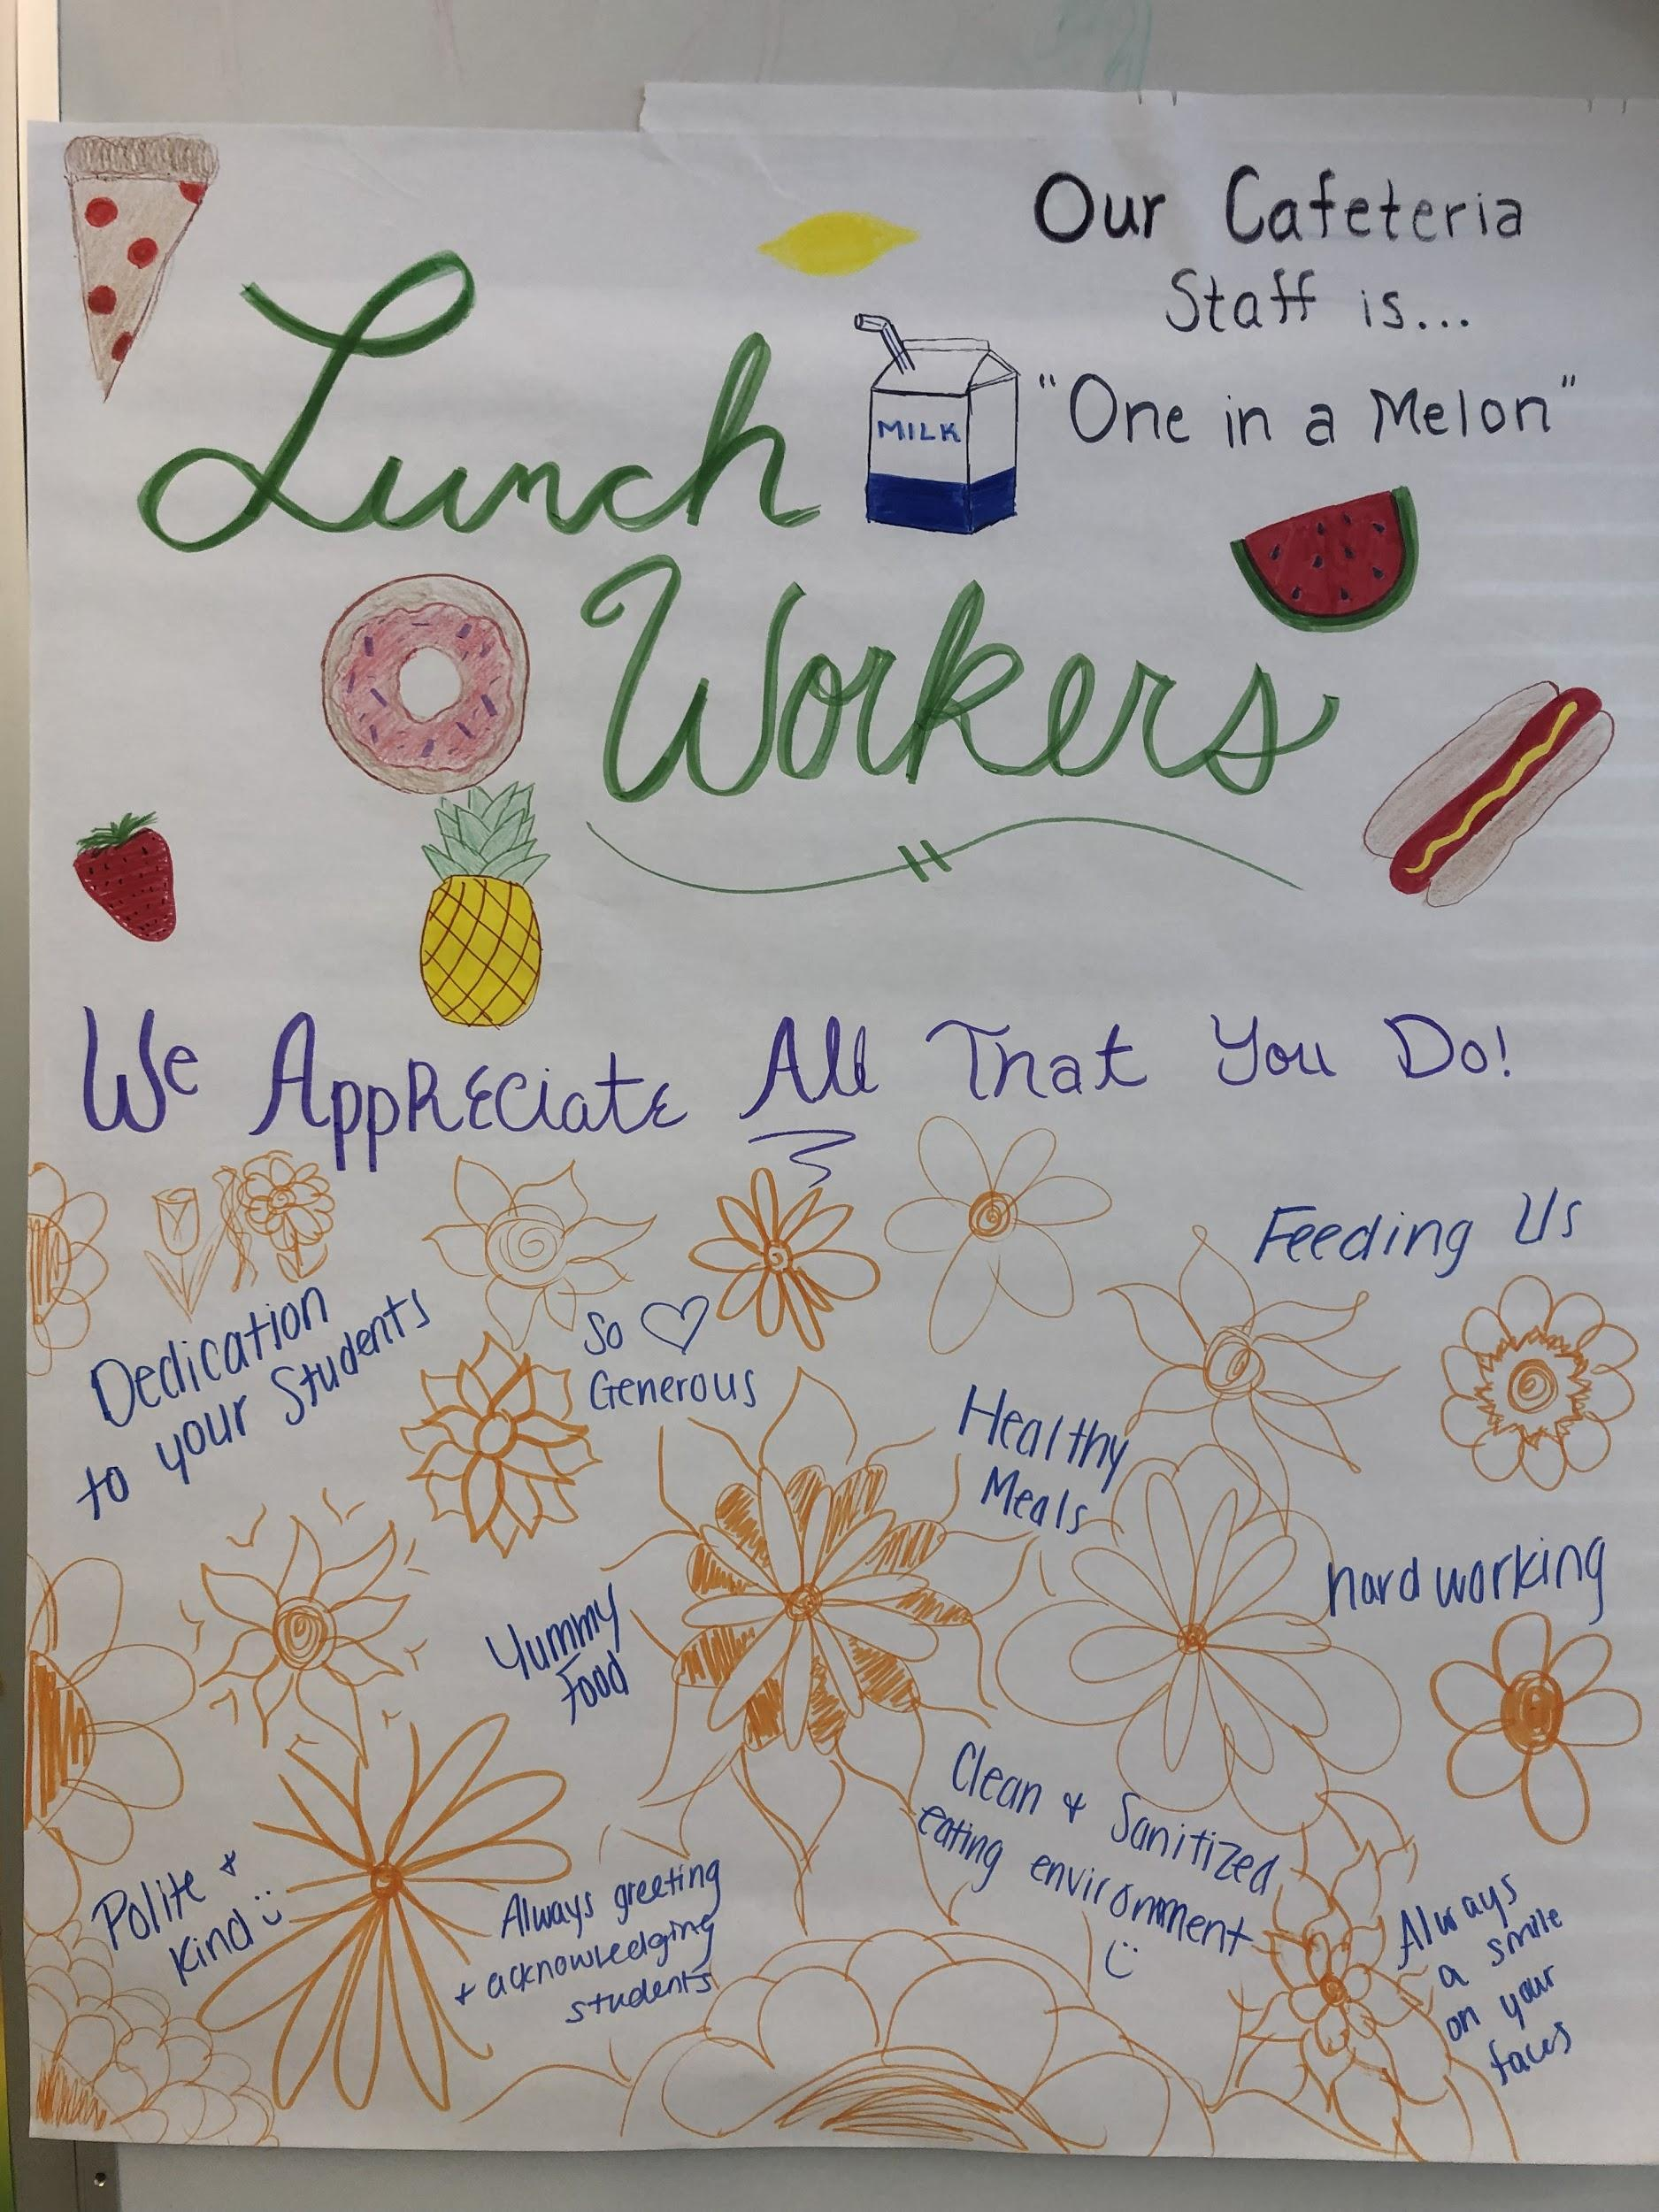 Our Cafeteria
Staff is...
"One in a Melon"
Lunch
MILK
Workers
We Appreciate All That You Do!
Feeding Us
Dedication
to your Students
So ♡
Generous
Healthy
Meals
hard working
Yummy
Food
Clean & Sanitized
eating environment
Polite &
Kind
Always greeting
+ acknowledging
students
Always
a smile
on your
faces